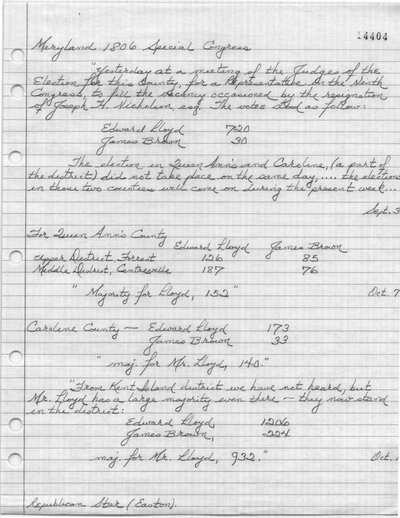 14404
Maryland 1806 Special Congress
"Yesterday at a meeting of the Judges of the
Election for this County, for a Representative in the Ninth
Congress, to fill the vacancy occasioned by the resignation
of Joseph H. Nicholson, esq. The votes stood as follow:
Edward Lloyd 720
James Brown 30
The election in Queen Ann's and Caroline, (a part of
the district) did not take place on the same day, .... the elections
in those two counties will come on during the present week...
Sept. 3
For Queen Ann's County
Edward Lloyd James Brown
Upper District, Forrest 126 85
Middle District, Centreville 187 76
"Majority for Lloyd, 152"
Oct. 7
Caroline County — Edward Lloyd 173
James Brown 33
"maj. for Mr. Lloyd, 140."
"From Kent Island district we have not heard, but
Mr. Lloyd has a large majority even there — they now stand
in the district:
Edward Lloyd, 1206
James Brown, 224
maj. for Mr. Lloyd, 932."
Oct.
Republican Star (Easton).